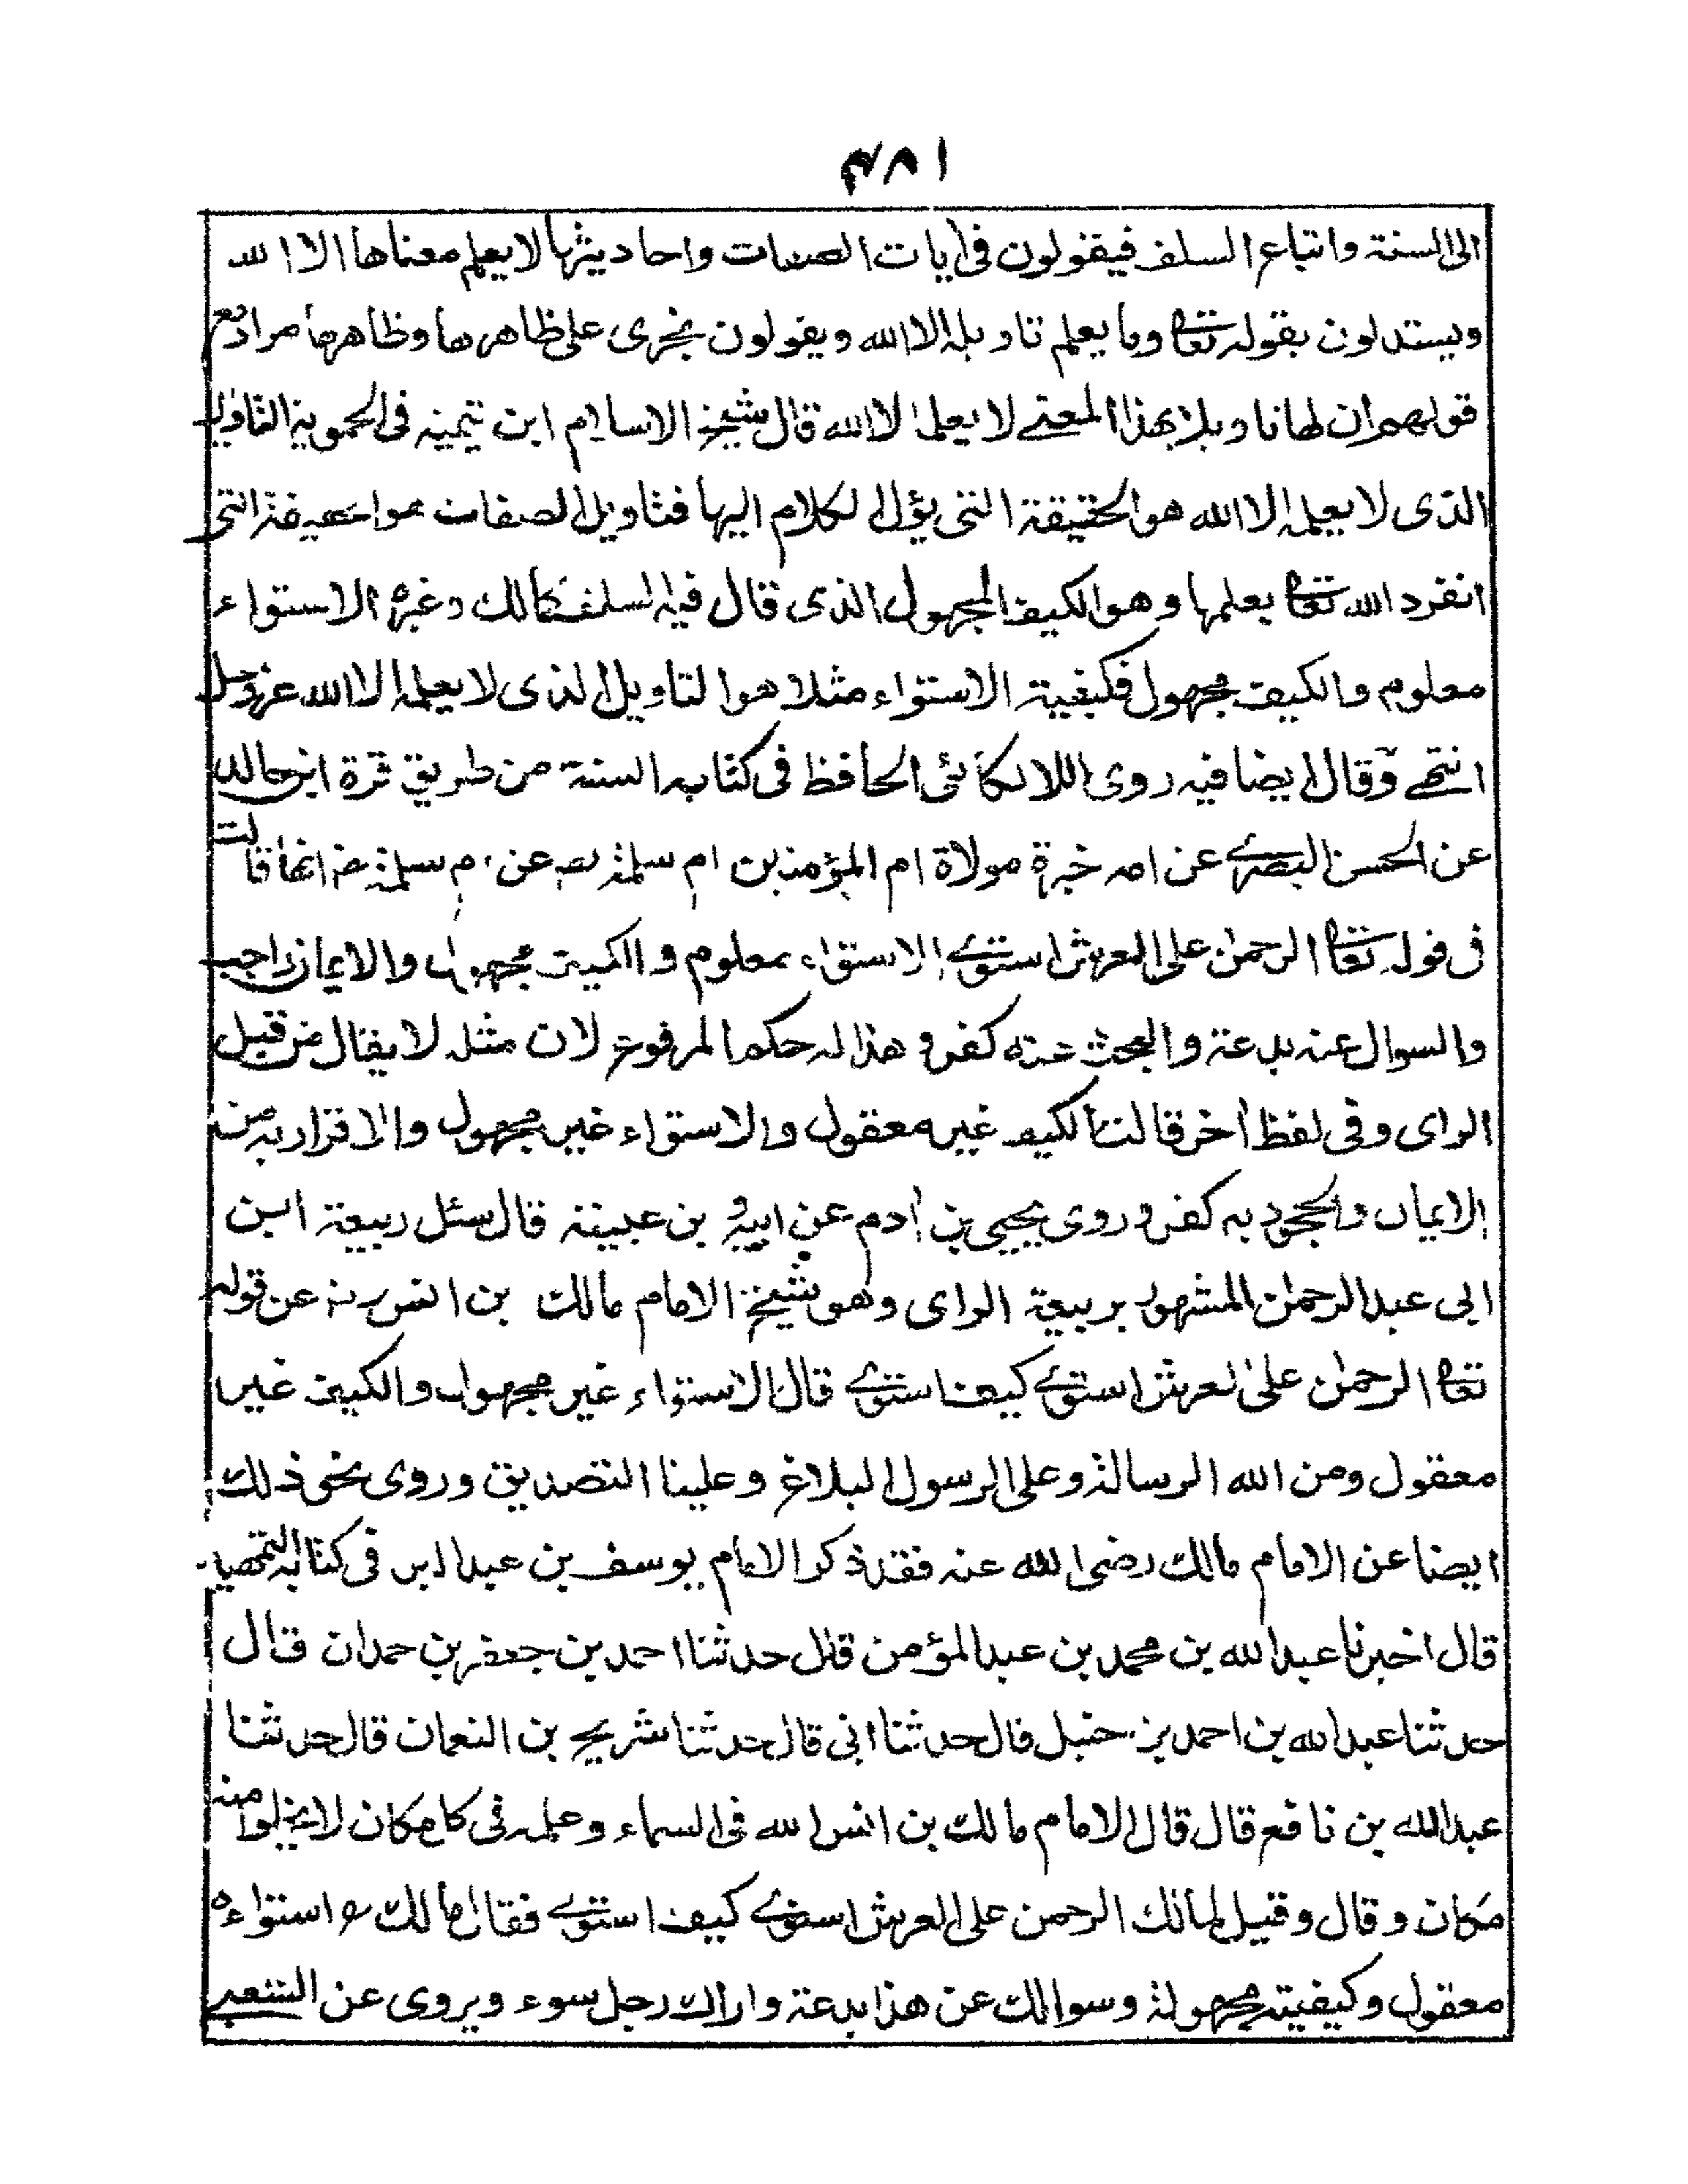 ١٨٤
الى السنة واتباع السلف فيقولون فى ايات الصفات واحاديثها لا يعلم معناها الا الله
ويستدلون بقوله تعا وما يعلم تاويله الا الله ويقولون تجرى على ظاهرها وظاهرها مراد مع
قولهم ان لها تاويلا بهذا المعنى لا يعلمه الا الله قال شيخ الاسلام ابن تيمية فى الحموية التاويل
الذى لا يعلمه الا الله هو الحقيقة التى يؤل الكلام اليها فتاويل الصفات هو الحقيقة التى
انفرد الله تعا بعلمها وهو الكيف المجهول الذى قال فيه السلف كمالك وغيره الاستواء
معلوم والكيف مجهول فكيفية الاستواء مثلا هو التاويل الذى لا يعلمه الا الله عز وجل
انتهى وقال ايضا فيه روى اللالكائى الحافظ فى كتابه السنة من طريق قرة ابن خالد
عن الحسن البصرى عن امه خيرة مولاة ام المؤمنين ام سلمة عن ام سلمة رض انها قالت
فى قوله تعا الرحمن على العرش استوى الاستواء معلوم والكيف مجهول والايمان واجب
والسوال عنه بدعة والبحث عنه كفر وهذا له حكم المرفوع لان مثله لا يقال من قبيل
الراى وفى لفظ آخر قالت الكيف غير معقول والاستواء غير مجهول والاقرار به من
الايمان والجحود به كفر وروى يحيى بن آدم عن ابيه بن عيينة قال سئل ربيعة ابن
ابى عبد الرحمن المشهور بربيعة الراى وهو شيخ الامام مالك بن انس رض عن قوله
تعا الرحمن على العرش استوى كيف استوى قال الاستواء غير مجهول والكيف غير
معقول ومن الله الرسالة وعلى الرسول البلاغ وعلينا التصديق وروى نحو ذلك
ايضا عن الامام مالك رضى الله عنه فقد ذكر الامام يوسف بن عبد البر فى كتابه التمهيد
قال اخبرنا عبد الله بن محمد بن عبد المؤمن قال حدثنا احمد بن جعفر بن حمدان قال
حدثنا عبد الله بن احمد بن حنبل قال حدثنا ابى قال حدثنا شريح بن النعمان قال حدثنا
عبد الله بن نافع قال قال الامام مالك بن انس الله فى السماء وعلمه فى كل مكان لا يخلوا منه
مكان وقال وقيل لمالك الرحمن على العرش استوى كيف استوى فقال مالك استواءه
معقول وكيفيته مجهولة وسوالك عن هذا بدعة واراك رجل سوء ويروى عن الشعبى